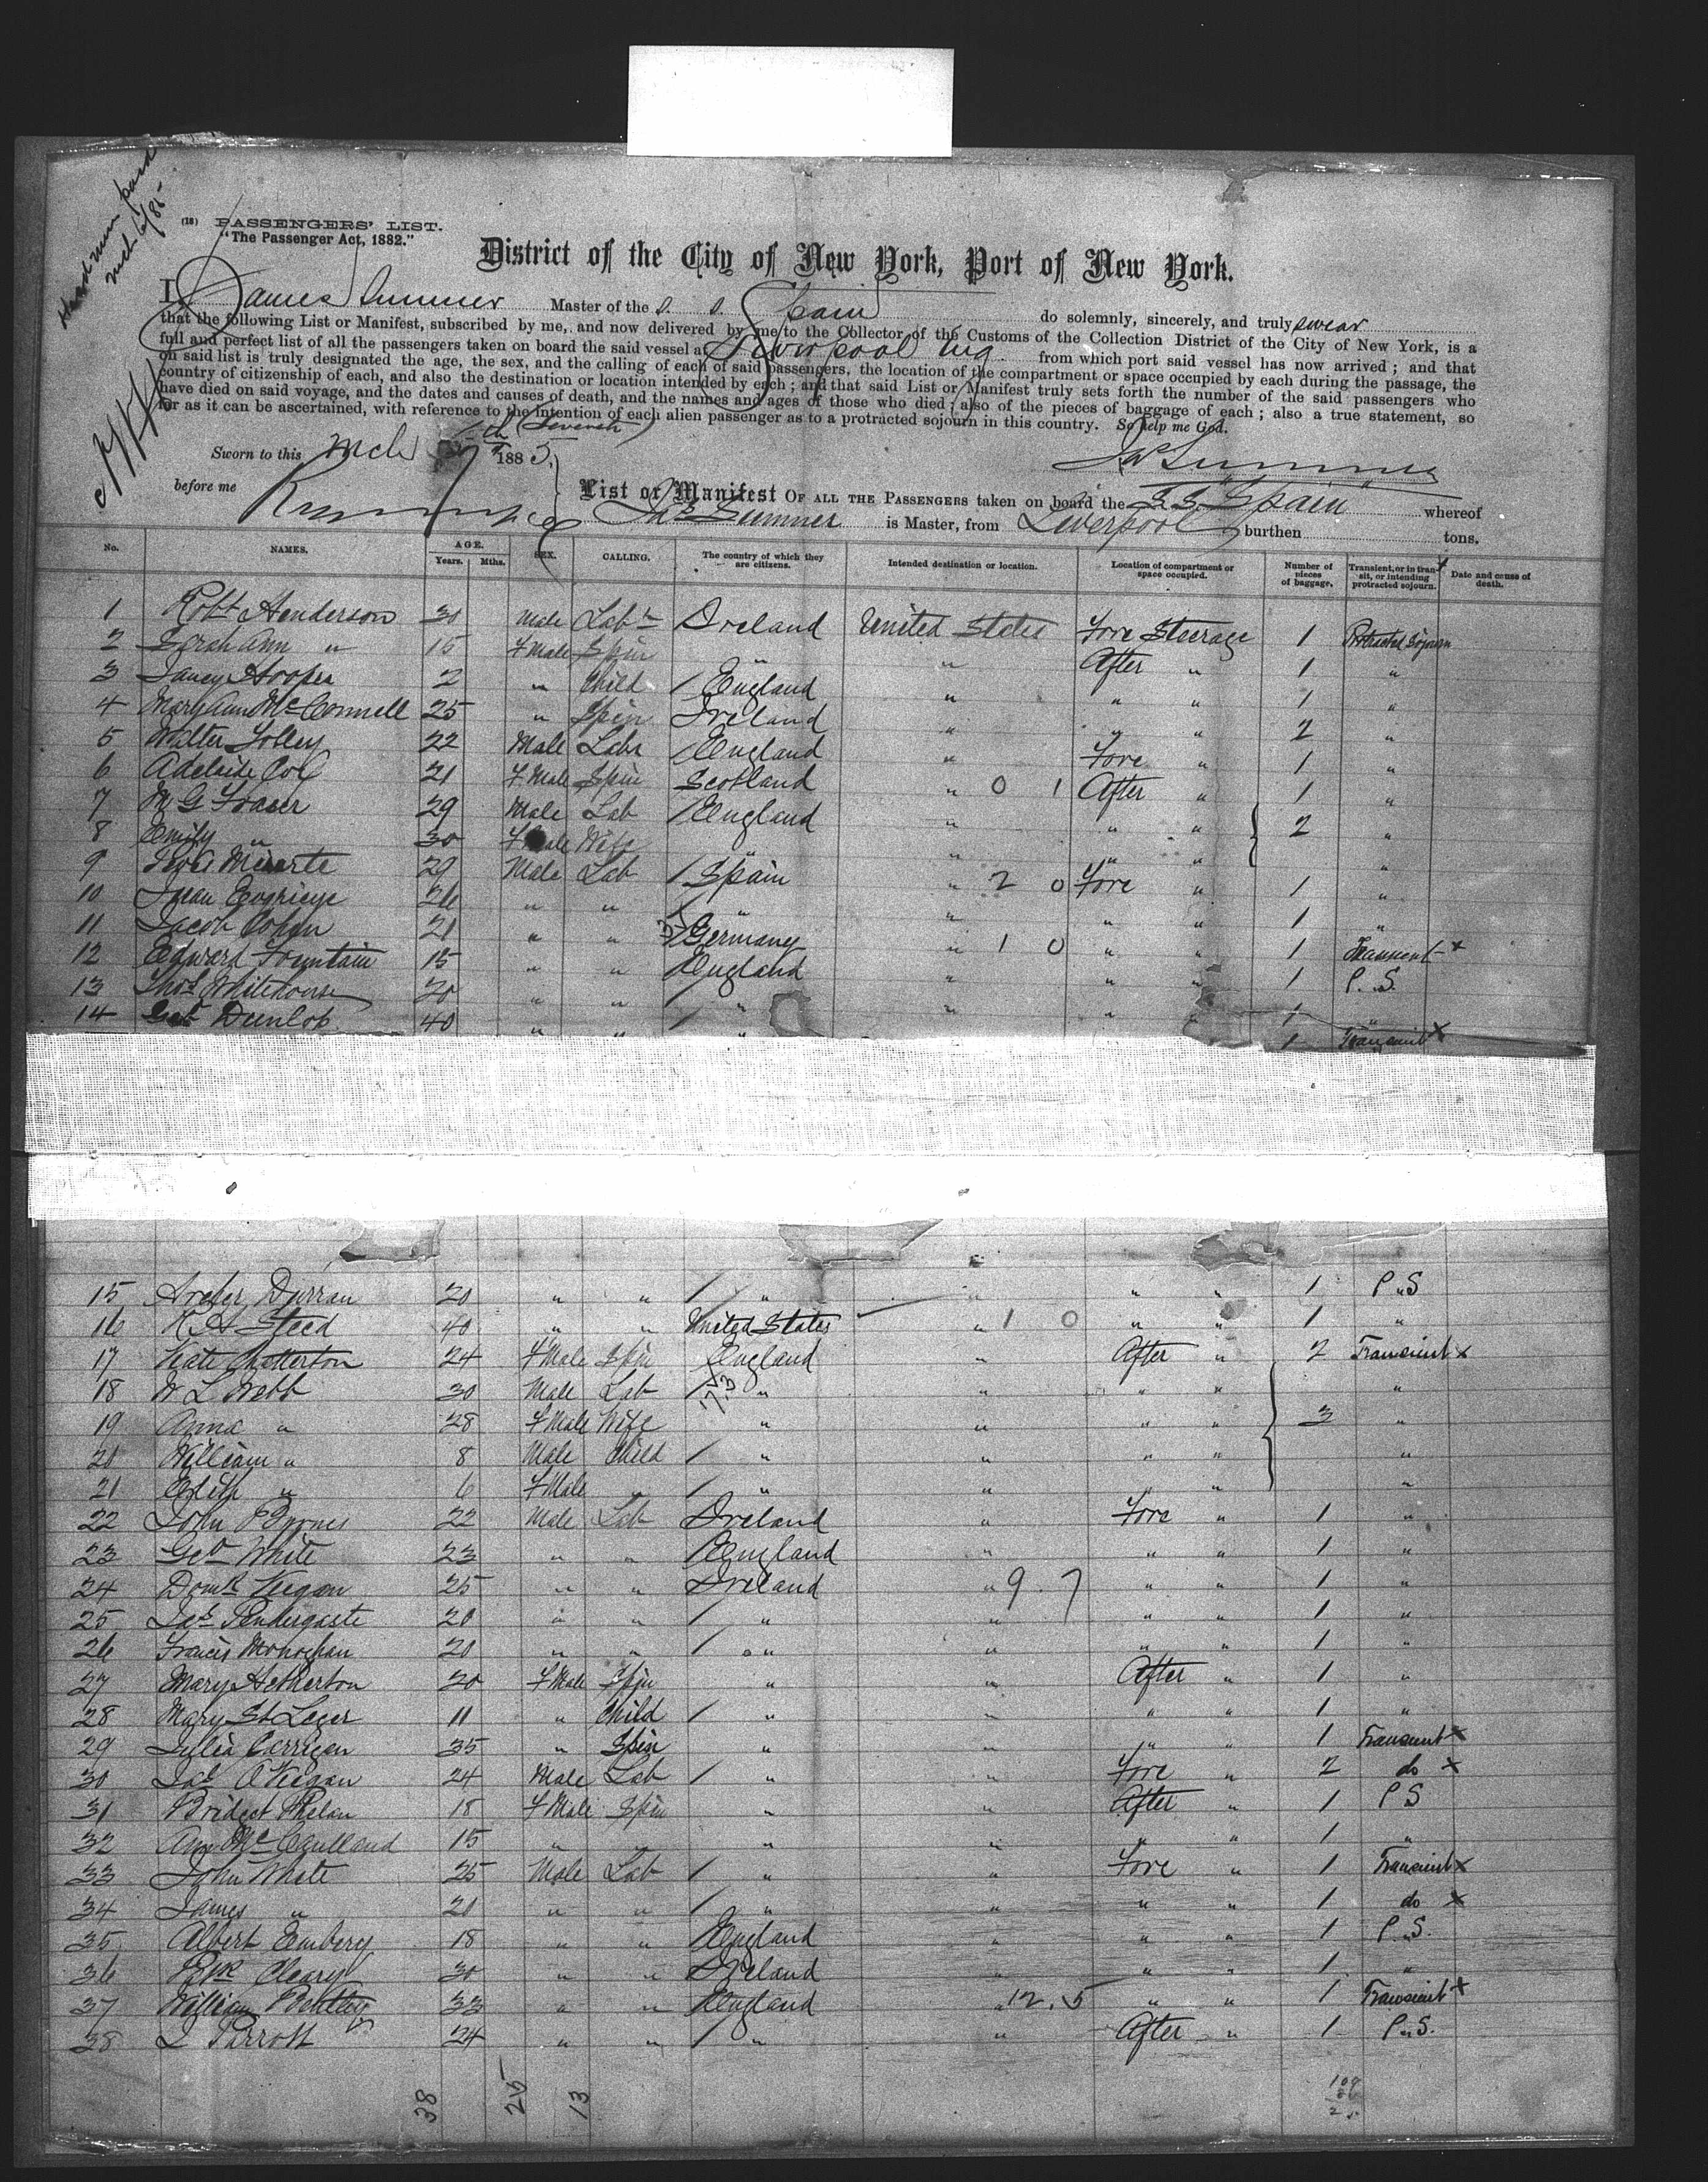 mch 6/85
(18) PASSENGERS' LIST.
"The Passenger Act, 1882."
District of the City of New York, Port of New York.
I, James Sumner Master of the S. S. Spain do solemnly, sincerely, and truly swear
that the following List or Manifest, subscribed by me, and now delivered by me to the Collector of the Customs of the Collection District of the City of New York, is a
full and perfect list of all the passengers taken on board the said vessel at Liverpool Eng from which port said vessel has now arrived; and that
on said list is truly designated the age, the sex, and the calling of each of said passengers, the location of the compartment or space occupied by each during the passage, the
country of citizenship of each, and also the destination or location intended by each; and that said List or Manifest truly sets forth the number of the said passengers who
have died on said voyage, and the dates and causes of death, and the names and ages of those who died; also of the pieces of baggage of each; also a true statement, so
far as it can be ascertained, with reference to the intention of each alien passenger as to a protracted sojourn in this country. So help me God.
(Seventh)
Sworn to this mch 7th 1885, Jas Sumner
before me
List or Manifest OF ALL THE PASSENGERS taken on board the S.S. "Spain" whereof
Jas Sumner is Master, from Liverpool, burthen tons.
No. NAMES. AGE. Years. Mths. SEX. CALLING. The country of which they are citizens. Intended destination or location. Location of compartment or space occupied. Number of pieces of baggage. Transient, or in transit, or intending protracted sojourn. Date and cause of death.
1 Robt Henderson 30 Male Labr Ireland United States Fore Steerage 1 Protracted Sojourn
2 Sarah Ann " 15 FMale Spin " " After " 1 "
3 Hooper 2 " Child / England " " " 1 "
4 Mary Ann McConnell 25 " Spin Ireland " " " 2 "
5 Walter Jolley 22 Male Labr / England " Fore " 1 "
6 Adelaide Cox 21 FMale Spin Scotland " 0 1 After " 1 "
7 M G Fraser 29 Male Lab / England " " " 2 "
8 Emily " 30 FMale Wife " " " " "
9 29 Male Lab / Spain " 2 0 Fore " 1 "
10 Juan 26 " " / " " " " 1 "
11 Jacob Cohen 21 " " / Germany " 1 0 " " 1 Transient x
12 Edward Fountain 15 " " England " " " 1 P. S.
13 Thos Whitehouse 20 " " / " " " " 1 "
14 Geo Dunlop 40 " " / " 1 Transient x
15 Archer Durran 20 " " / " " " " 1 P " S
16 R H Steed 40 " " United States " 1 0 " " 1 "
17 Kate Chatterton 24 FMale Spin England " After " 2 Transient x
18 W L Webb 30 Male Lab / " " " " "
19 Anna " 28 FMale Wife " " " " 3 "
20 William " 8 Male Child / " " " " "
21 Edith " 6 FMale " / " " " " "
22 John Byrnes 22 Male Lab Ireland " Fore " 1 "
23 Geo White 23 " " / England " " " 1 "
24 Domk Keegan 25 " " Ireland " 9 . 7 " " 1 "
25 Jas Pendergaste 20 " " / " " " " 1 "
26 Francis Monoghan 20 " " / " " " " 1 "
27 Mary Hetherton 20 FMale Spin " " After " 1 "
28 Mary St Leger 11 " Child / " " " " 1 "
29 Julia Carrigan 35 " Spin " " " " 1 Transient x
30 Jas O'Keegan 24 Male Lab / " " Fore " 2 do x
31 Bridget Phelan 18 FMale Spin " " After " 1 P S
32 Ann 15 " " " " " " 1 "
33 John White 25 Male Lab / " " Fore " 1 Transient x
34 James " 21 " " / " " " " 1 do x
35 Albert Embery 18 " " England " " " 1 P. S.
36 Cleary 30 " " Ireland " " " 1 "
37 William Bentley 33 " " England " 12 . 5 " " 1 Transient x
38 J Parrott 24 " " / " " After " 1 P. S.
38 25 13